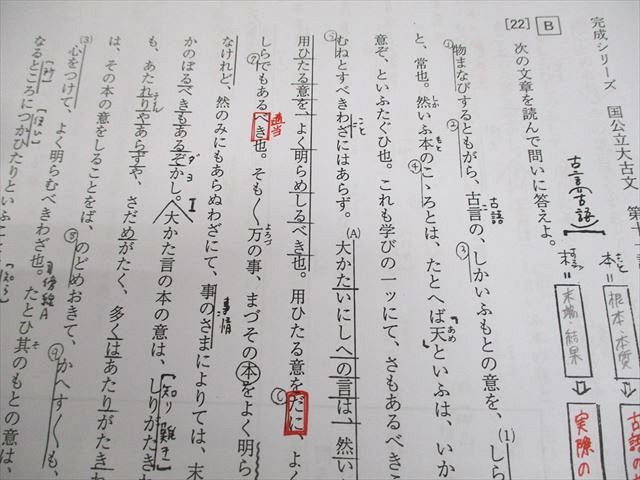 完成シリーズ 国公立大古文 第十
[22] B
次の文章を読んで問いに答えよ。
古言(古語)
本 = 根本・本質
末 = 末端・結果
古語の
実際の
物まなびするともがら、古言の、しかいふもとの意を、(1)しら
古語
と、常也。然いふ本のこゝろとは、たとへば天といふは、いか
意ぞ、といふたぐひ也。これも学びの一ッにて、さもあるべきこ
むねとすべきわざにはあらず。(A)大かたいにしへの言は、然い
用ひたる意を、よく明らめしるべき也。用ひたる意をだに、よく
適当
しらでもあるべき也。そも〱万の事、まづその本をよく明ら
なけれど、然のみにもあらぬわざにて、事のさまによりては、末
事情
かのぼるべきもあるぞかし。大かた言の本の意は、しりがたき
知り難き
も、あたれりやあらずや、さだめがたく、多くはあたりがたきわ
は、その本の意をしることをば、のどめおきて、かへすく〱も、
(3)心をつけて、よく明らむべきわざ也。たとひ其のもとの意は、
なるところにつかひたりといふこと